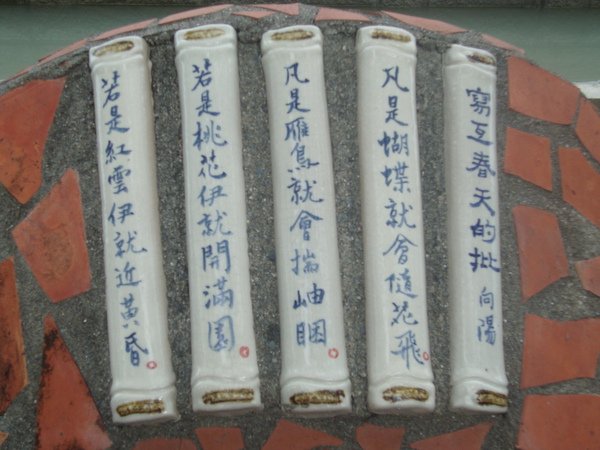 寫互春天的批 向陽
凡是蝴蝶就會隨花飛
凡是雁鳥就會揣岫睏
若是桃花伊就開滿園
若是紅雲伊就近黃昏